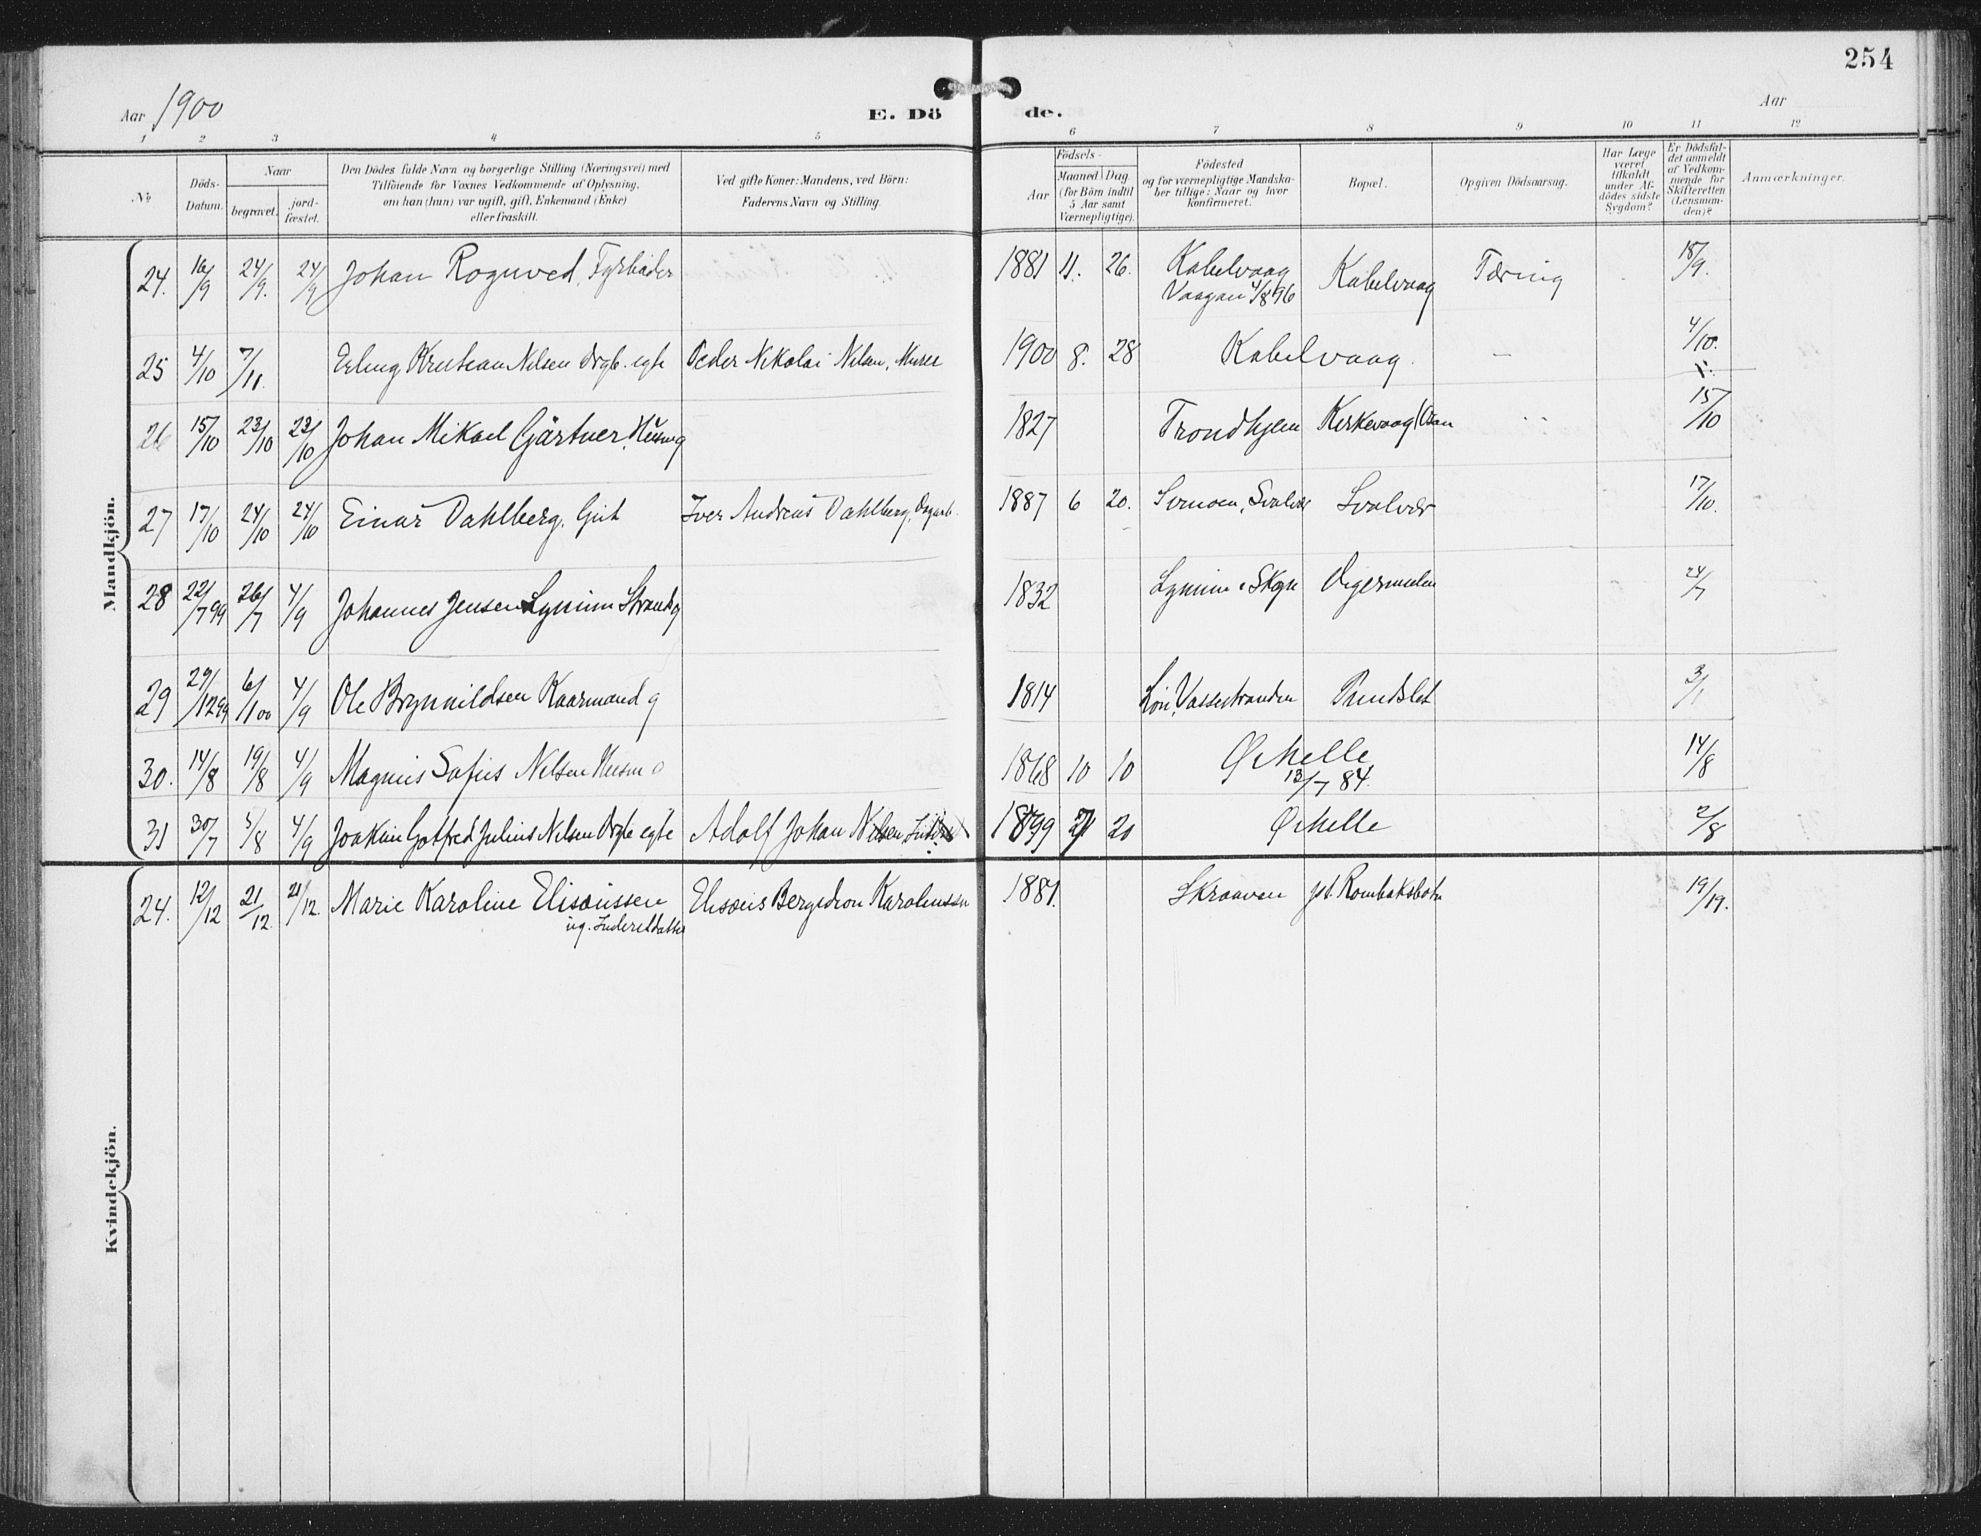 254
Aar 1900
E. Dö
de.
Aar
1 2 3 4 5 6 7 8 9 10 11 12
No
Döds-
Datum.
Naar
begravet.
jord-
fæstet.
Den Dödes fulde Navn og borgerlige Stilling (Næringsvei) med
Tilföiende for Voxnes Vedkommende af Oplysning,
om han (hun) var ugift, gift, Enkemand (Enke)
eller fraskilt.
Ved gifte Koner: Mandens, ved Börn:
Faderens Navn og Stilling.
Födsels-
Aar
Maaned
Dag
(for Börn indtil
5 Aar samt
Værnepligtige).
Födested
og for værnepligtige Mandska-
ber tillige: Naar og hvor
Konfirmeret.
Bopæl.
Opgiven Dödsaarsag.
Har Læge
været
tilkaldt
under Af-
dödes sidste
Sygdom?
Er Dödsfal-
det anmeldt
af Vedkom-
mende for
Skifteretten
(Lensman-
den)?
Anmærkninger.
Mandkjön.
24. 16/9 24/9. 24/9 Johan Rognved, Fyrbøder 1881 11. 26. Kabelvaag Kabelvaag Tæring 18/9.
Vaagan 4/8 96
25 4/10 7/11. Erling Kristian Nilsen Peder Nikolai Nilsen, Murer 1900 8. 28 Kabelvaag. — 4/10.
26 15/10 23/10 23/10 Johan Mikael Gärtner, 1827 Trondhjem Kirkevaag 15/10
27 17/10 24/10 24/10 Einar Dahlberg, Gut Iver Andreas Dahlberg, 1887 6 20. Svolvær Svolvær 17/10.
28 22/7 99 26/7 4/9 Johannes Jensen 1832 Digermulen 24/7
29 29/12 99 6/1 00 4/9 Ole Brynnildsen Kaarmand g 1814 3/1
30. 14/8 19/8 4/9 Magnus Sofus Nilsen 1868 10 10 Ørhelle 14/8
13/7 84.
31 30/7 5/8 4/9 Joakim Gotfred Julius Nilsen Adolf Johan Nilsen 1899 20 Ørhelle 2/8
Kvindekjön.
24. 12/12 21/12. 21/12. Marie Karoline Elisæussen Elisæus Bergedion 1881. Skraaven 19/19.
ug.